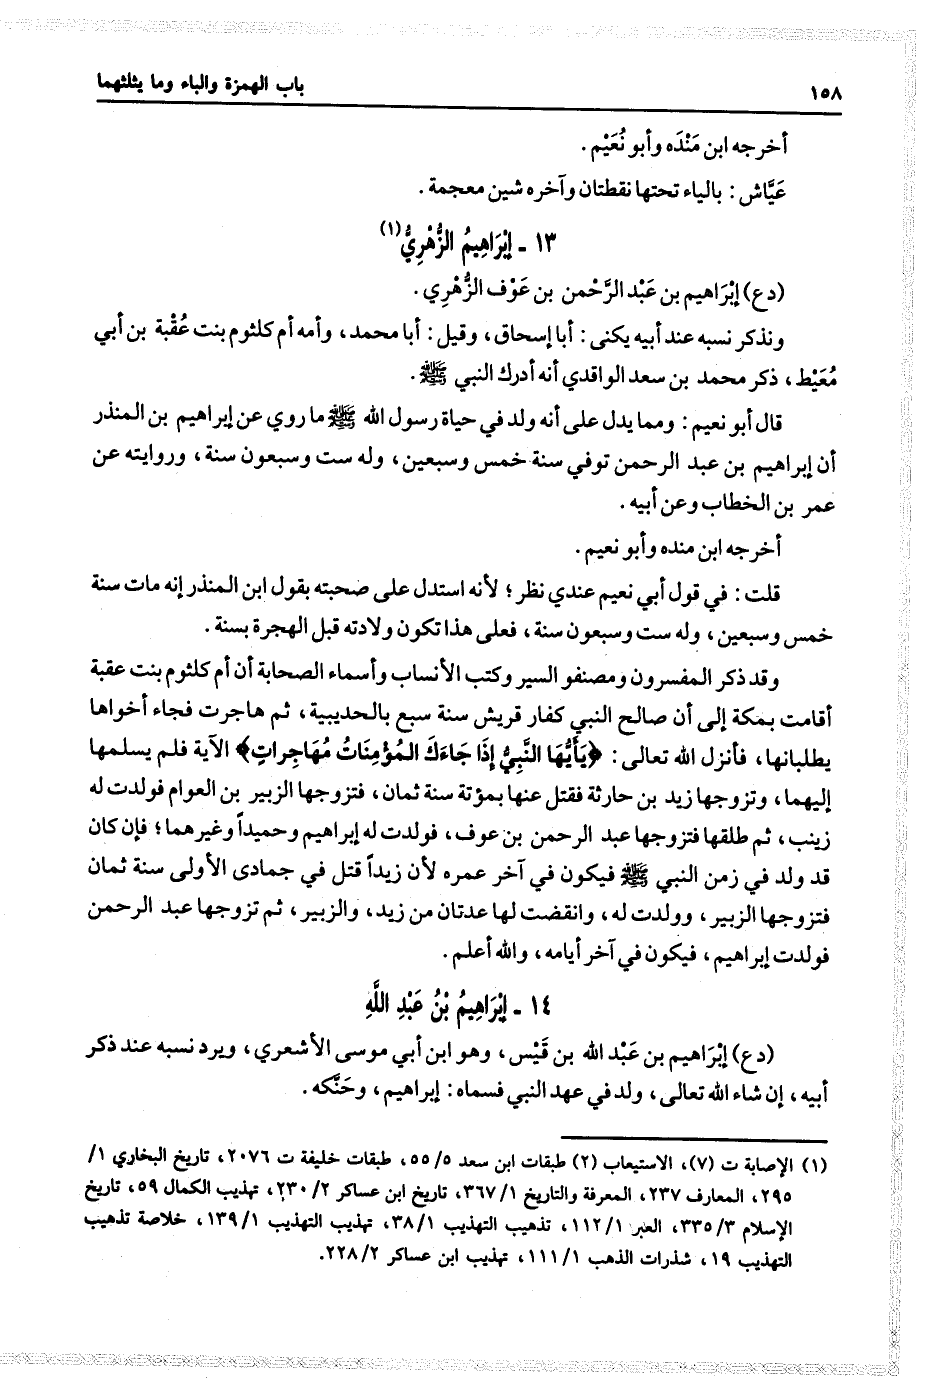 ١٥٨ باب الهمزة والباء وما يثلثهما
أخرجه ابن مَنْدَه وأبو نُعَيْم.
عَيَّاش: بالياء تحتها نقطتان وآخره شين معجمة.
١٣ ـ إبْرَاهِيمُ الزُّهْرِيُّ(١)
(دع) إبْرَاهيم بن عَبْد الرَّحْمن بن عَوْف الزُّهْرِي.
ونذكر نسبه عند أبيه يكنى: أبا إسحاق، وقيل: أبا محمد، وأمه أم كلثوم بنت عُقْبة بن أبي
مُعَيْط، ذكر محمد بن سعد الواقدي أنه أدرك النبي ﷺ.
قال أبو نعيم: ومما يدل على أنه ولد في حياة رسول الله ﷺ ما روي عن إبراهيم بن المنذر
أن إبراهيم بن عبد الرحمن توفي سنة خمس وسبعين، وله ست وسبعون سنة، وروايته عن
عمر بن الخطاب وعن أبيه.
أخرجه ابن منده وأبو نعيم.
قلت: في قول أبي نعيم عندي نظر؛ لأنه استدل على صحبته بقول ابن المنذر إنه مات سنة
خمس وسبعين، وله ست وسبعون سنة، فعلى هذا تكون ولادته قبل الهجرة بسنة.
وقد ذكر المفسرون ومصنفو السير وكتب الأنساب وأسماء الصحابة أن أم كلثوم بنت عقبة
أقامت بمكة إلى أن صالح النبي كفار قريش سنة سبع بالحديبية، ثم هاجرت فجاء أخواها
يطلبانها، فأنزل الله تعالى: ﴿يَأَيُّهَا النَّبِيُّ إذَا جَاءَكَ المُؤمِنَاتُ مُهَاجِراتٍ﴾ الآية فلم يسلمها
إليهما، وتزوجها زيد بن حارثة فقتل عنها بمؤتة سنة ثمان، فتزوجها الزبير بن العوام فولدت له
زينب، ثم طلقها فتزوجها عبد الرحمن بن عوف، فولدت له إبراهيم وحميداً وغيرهما؛ فإن كان
قد ولد في زمن النبي ﷺ فيكون في آخر عمره لأن زيداً قتل في جمادى الأولى سنة ثمان
فتزوجها الزبير، وولدت له، وانقضت لها عدتان من زيد، والزبير، ثم تزوجها عبد الرحمن
فولدت إبراهيم، فيكون في آخر أيامه، والله أعلم.
١٤ ـ إبْرَاهِيمُ بْنُ عَبْدِ اللَّهِ
(دع) إبْرَاهيم بن عَبْد الله بن قَيْس، وهو ابن أبي موسى الأشعري، ويرد نسبه عند ذكر
أبيه، إن شاء الله تعالى، ولد في عهد النبي فسماه: إبراهيم، وحَنَّكه.
(١) الإصابة ت (٧)، الاستيعاب (٢) طبقات ابن سعد ٥/ ٥٥، طبقات خليفة ت ٢٠٧٦، تاريخ البخاري ١/
٢٩٥، المعارف ٢٣٧، المعرفة والتاريخ ١/ ٣٦٧، تاريخ ابن عساكر ٢/ ٢٣٠، تهذيب الكمال ٥٩، تاريخ
الإسلام ٣/ ٣٣٥، العبر ١/ ١١٢، تذهيب التهذيب ١/ ٣٨، تهذيب التهذيب ١/ ١٣٩، خلاصة تذهيب
التهذيب ١٩، شذرات الذهب ١/ ١١١، تهذيب ابن عساكر ٢/ ٢٢٨.